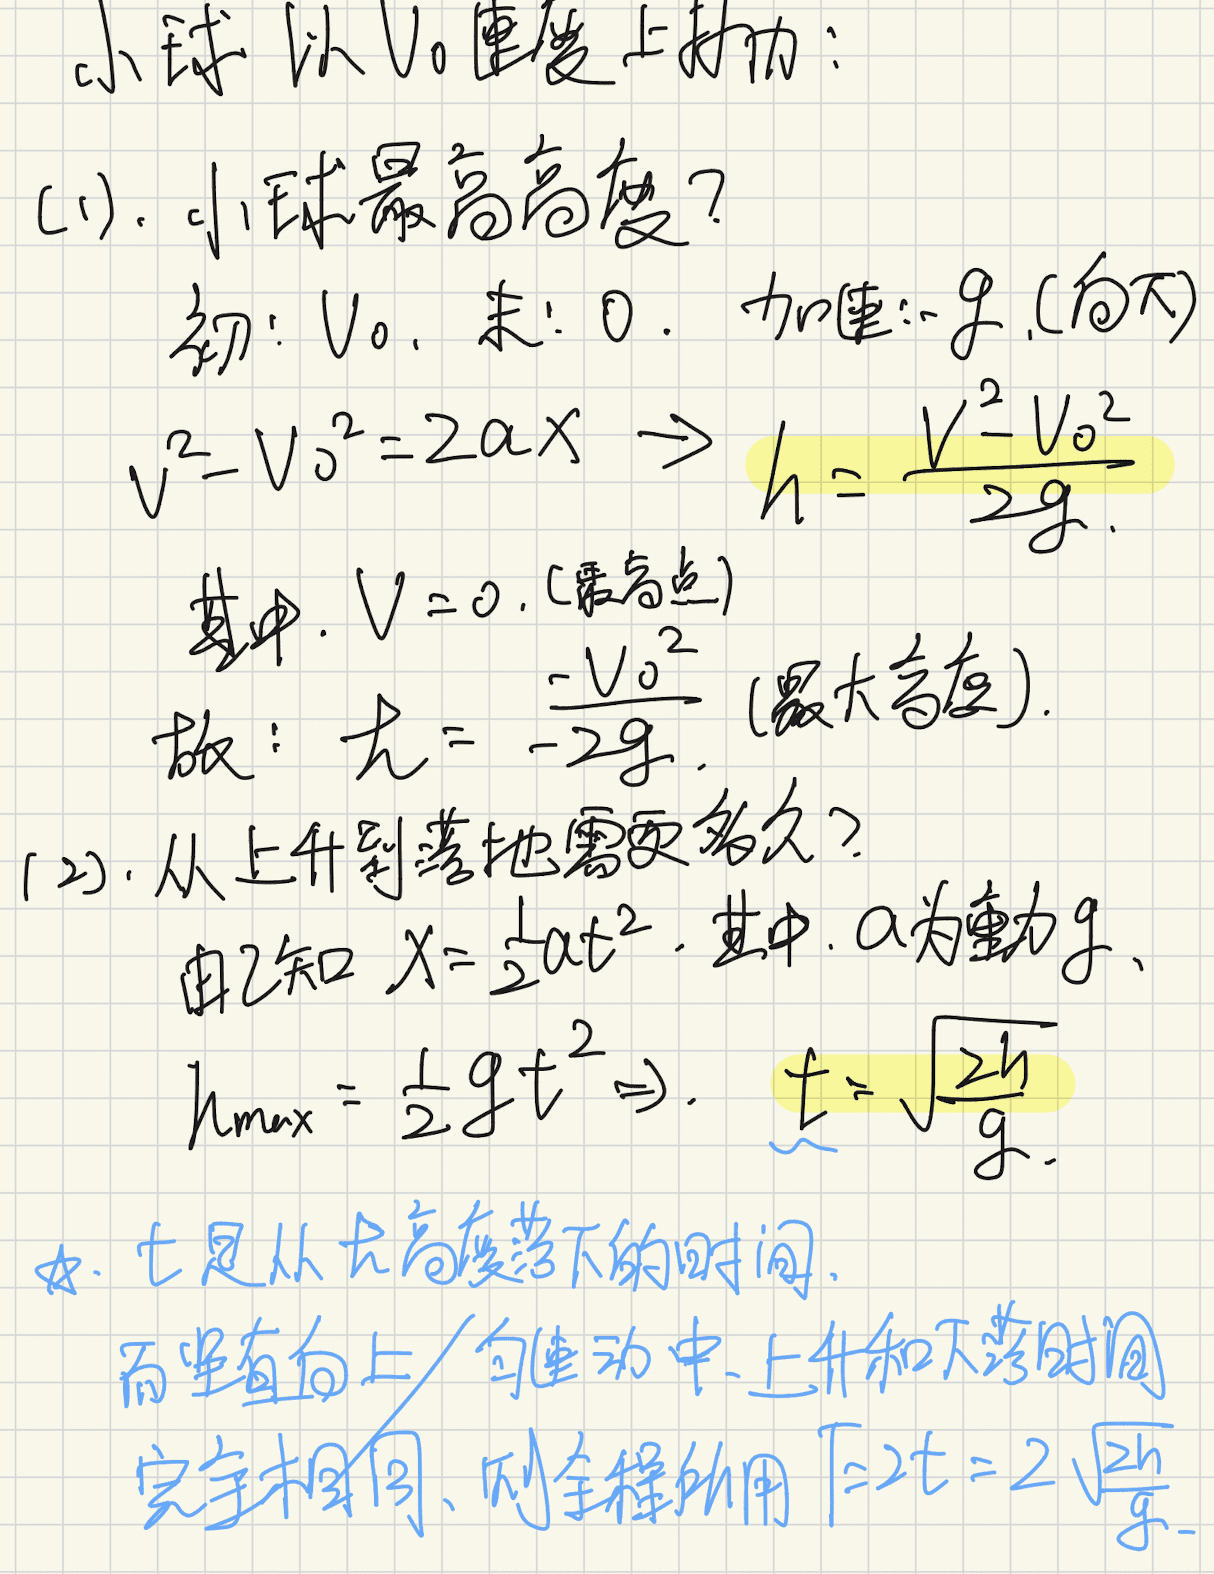 小球以V₀速度上抛:
(1). 小球最高高度?
初: V₀. 末: 0. 加速: -g.(向下)
v²-V₀²=2ax → h=(V²-V₀²)/2g.
其中. V=0.(最高点)
故: h = -V₀²/-2g. (最大高度).
(2). 从上升到落地需要多久?
由已知 x=½at². 其中. a为重力g、
hmax = ½gt² ⇒. t=√(2h/g).
☆. t是从h高度落下的时间.
而竖直向上/匀速动中、上升和下落时间
完全相同、则全程所用 T=2t=2√(2h/g).